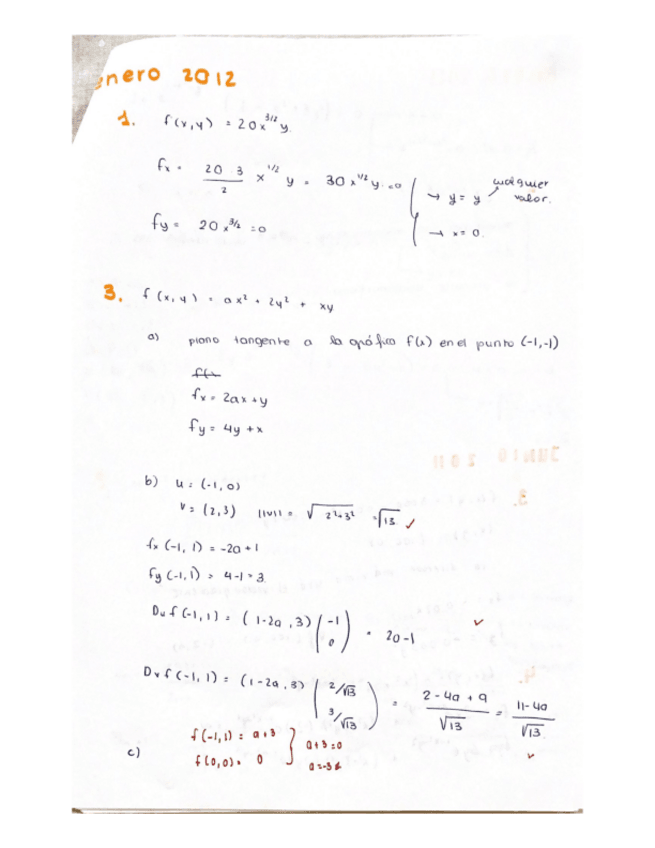 enero 2012
1. f(x,y) = 20x^3/2 y.
fx = 20·3/2 x^1/2 y = 30x^1/2 y = 0 → y = y cualquier valor.
fy = 20x^3/2 = 0 → x = 0.
3. f(x,y) = ax² + 2y² + xy
a) plano tangente a la gráfica f(x) en el punto (-1,-1)
fx = 2ax + y
fy = 4y + x
b) u = (-1, 0)
v = (2,3) ||v|| = √2²+3² = √13 ✓
fx (-1, 1) = -2a + 1
fy (-1,1) = 4-1 = 3.
Du f (-1, 1) = (1-2a, 3) (-1 0) = 2a-1 ✓
Dv f (-1, 1) = (1-2a, 3) (2/√13 3/√13) = 2-4a+9/√13 = 11-4a/√13 ✓
c) f(-1, 1) = a+3 } a+3=0
f(0,0) = 0 a=-3